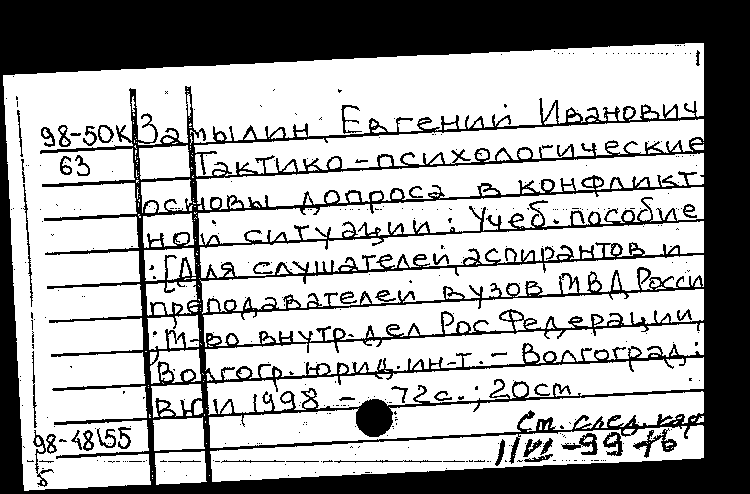 98-50К Замылин, Евгений Иванович
63 Тактико-психологические
основы допроса в конфликт-
ной ситуации: Учеб. пособие
:[Для слушателей, аспирантов и
преподавателей вузов МВД Росси
; М-во внутр. дел Рос. Федерации,
Волгогр. юрид. ин-т. - Волгоград:
ВЮИ, 1998. - 72с.; 20см.
См. след. кар
98-48155
11/VI-99